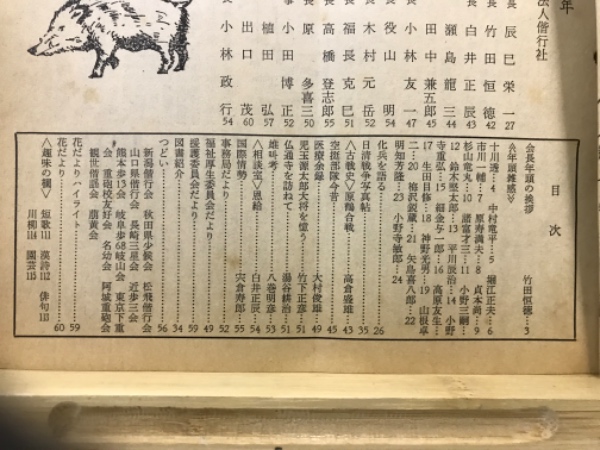 年
法人偕行社
長 辰巳栄一 27
長 竹田恒徳 42
長 白井正辰 43
瀬島龍三 44
田中兼五郎 45
長 小林友一 47
役 山明 54
長 木村元岳 52
長 福長克巳 51
高橋登志郎 55
長 原多喜三 50
事 小田博正 52
植田弘 57
出口茂 60
長 小林政行 54
目次
会長年頭の挨拶 竹田恒徳…3
≪年頭雑感≫
十川透…4 中村竜平…5 堀江正夫…6
市川一幡…7 原寿満夫…8 貞本尚…9
杉山竜丸…10 諸富才三…11 小野三嗣…
12 鈴木堅太郎…13 平川辰治…14 小野
寺重弘…15 細金与一郎…16 高原友生…
17 生田目修…18 神野光男…19 山根卓
二…20 梅沢鋭蔵…21 矢島喜八郎…22
明知芳隆…23 小野寺敏郎…24
化兵を語る……26
日清戦争写真帖……35
〈古戦史〉原鶴合戦……高倉盛雄…43
医療余録……大村俊雄…49
空挺部隊今昔……45
児玉源太郎大将を憶う……竹下正彦…51
仏通寺を訪ねて……湯谷耕治…51
雄叫考……八巻明彦…53
〈相談室〉恩給……白井正辰…54
国際情勢……宍倉寿郎…55
事務局だより……52
福祉厚生委員会だより……49
援護委員会だより……59
図書紹介……34
つどい……56
新潟偕行会 秋田県少候会 松飛偕行会
山口県偕行会 長崎三星会 近歩三会
熊本歩13会 岐阜歩68岐山会 東京下重
会 重砲校友好会 名幼会 阿城重砲会
観世偕謡会 萠黄会
花だよりハイライト……59
花だより……60
〈趣味の欄〉 短歌111 漢詩112 俳句113
川柳114 園芸115